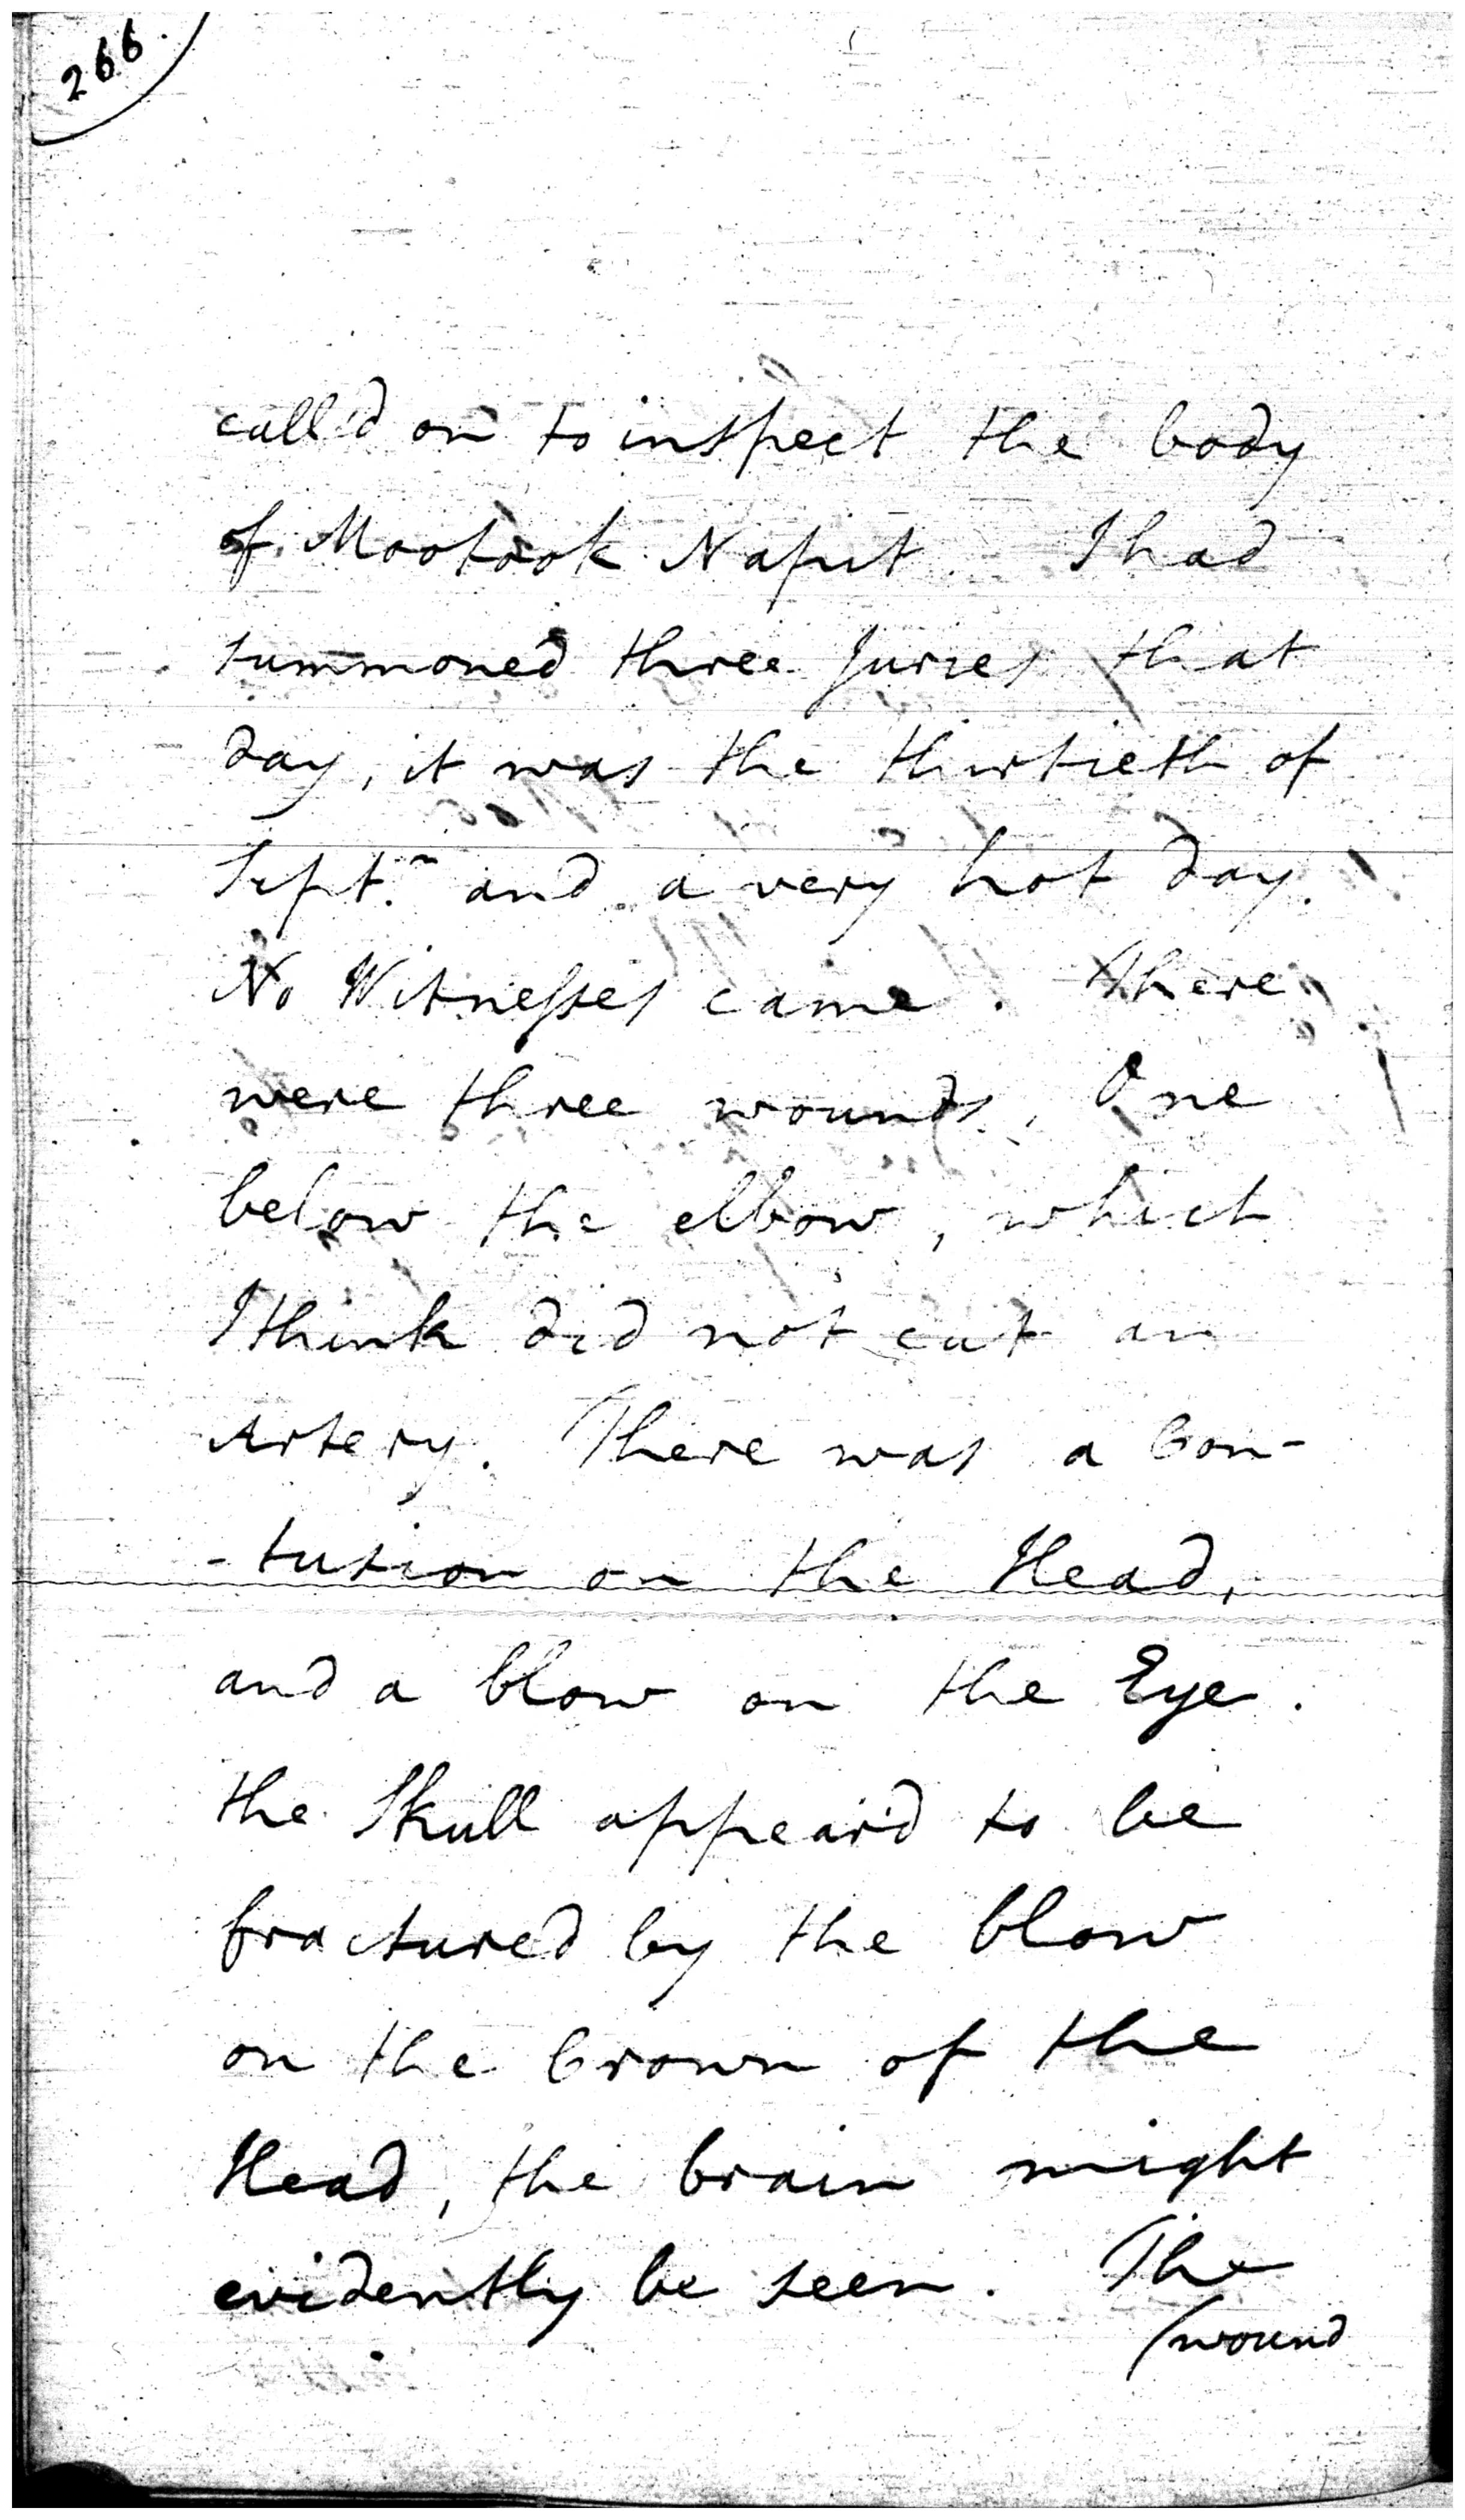 266.
call'd on to inspect the body
of Mootook Napit. I had
summoned three Juries that
day, it was the thirtieth of
Septr. and a very hot day.
No Witnesses came. There
were three wounds, One
below the elbow, which
I think did not cut an
Artery. There was a Con-
-tusion on the Head,
and a blow on the Eye.
the Skull appear'd to be
fractured by the blow
on the Crown of the
Head, the brain might
evidently be seen. The
(wound